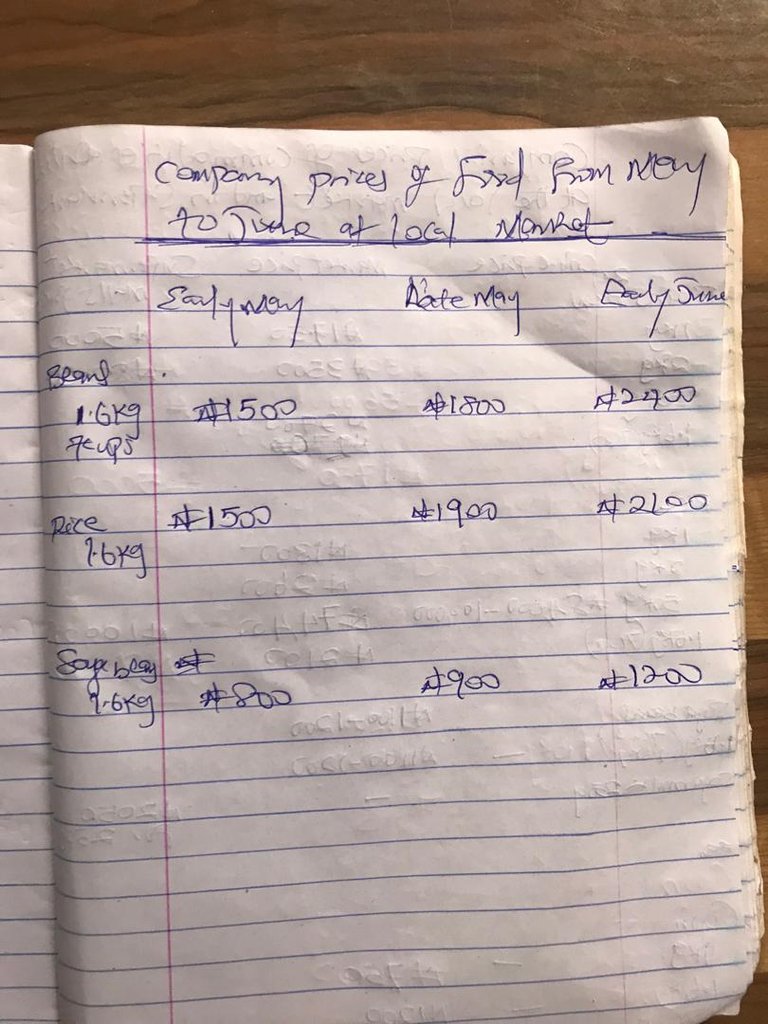 Company prices of food from May
to June at local Market
Early May Late May Early June
Beans
1.6kg ₦1500 ₦1800 ₦2400
7cups
Rice ₦1500 ₦1900 ₦2100
1.6kg
Soya beans ₦
1.6kg ₦800 ₦900 ₦1200